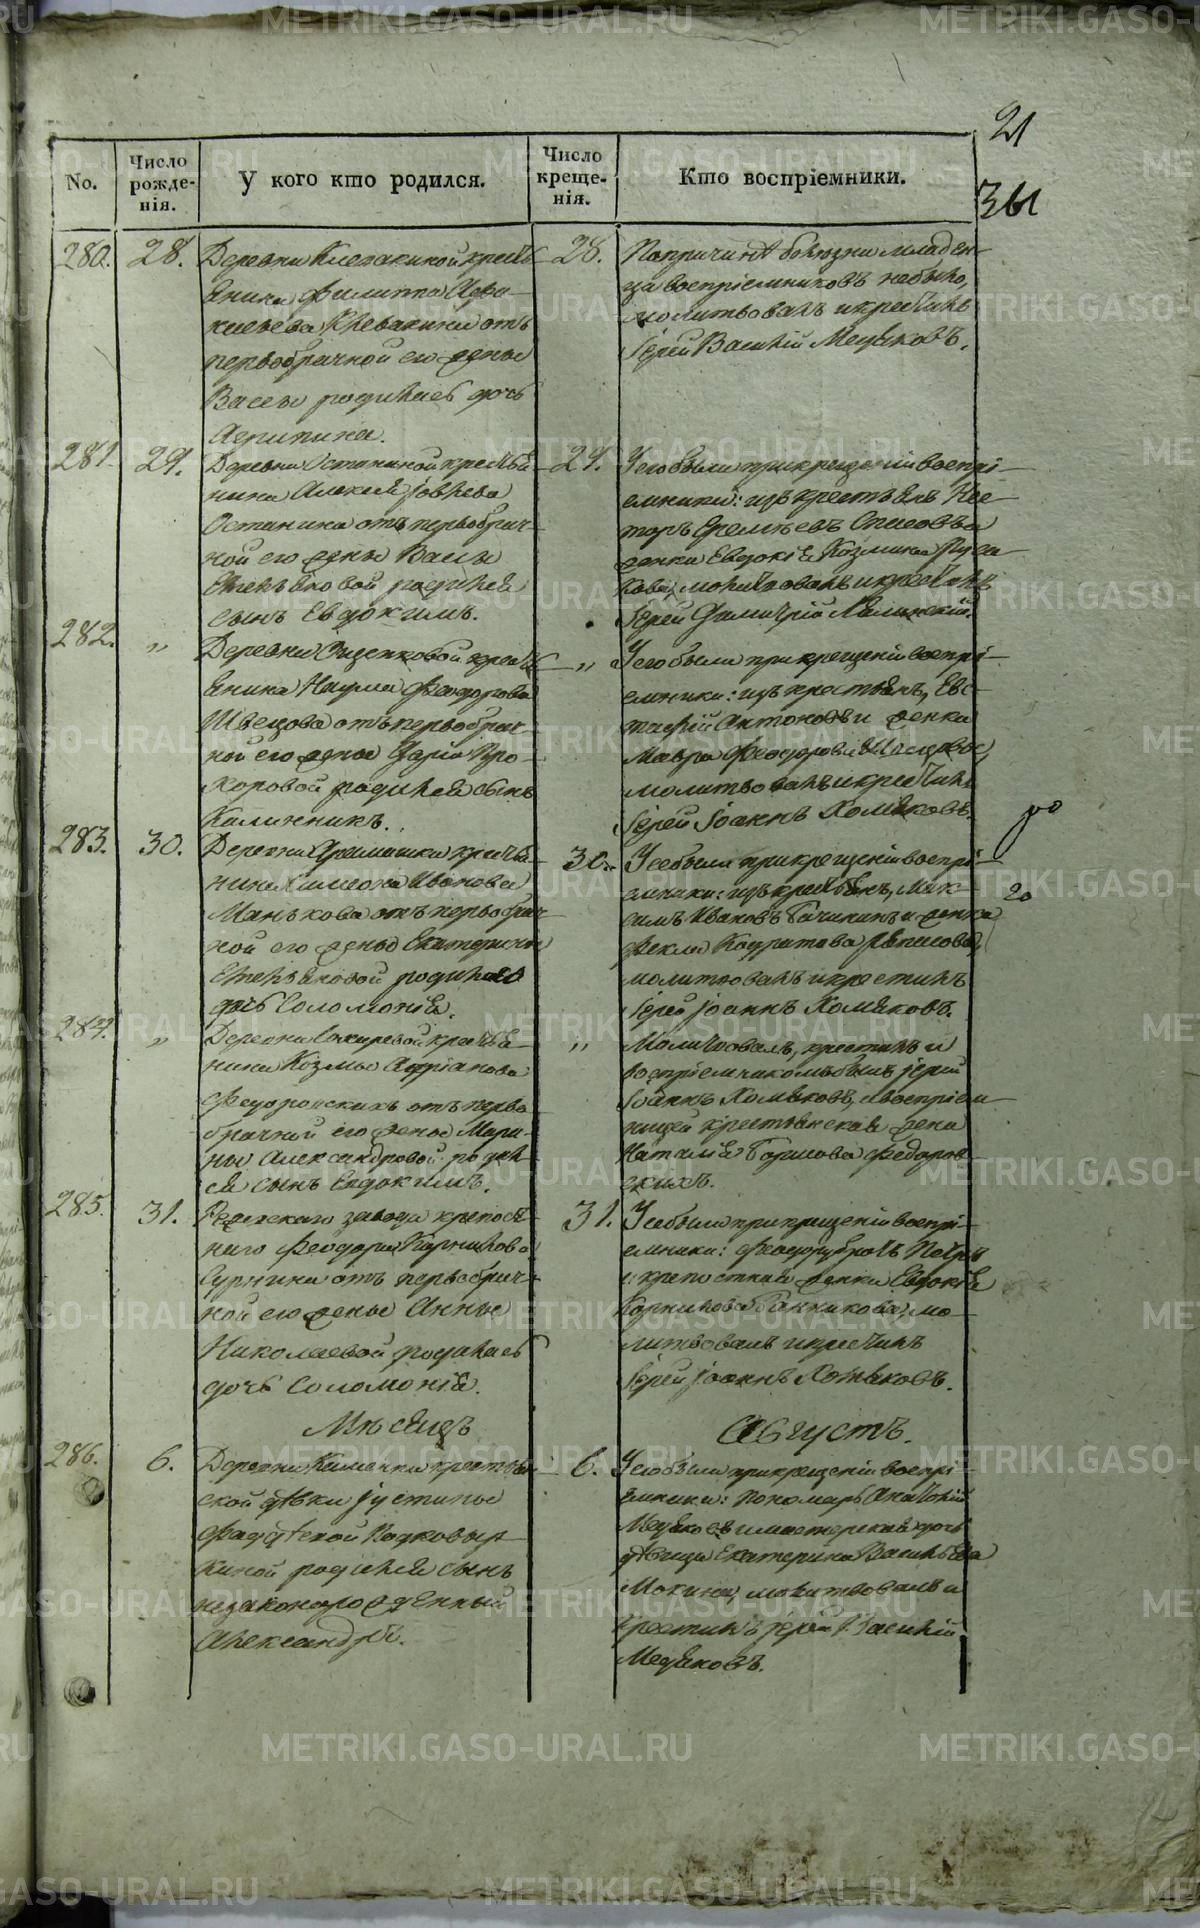 21
361
No.
Число рожде-нія.
У кого кто родился.
Число креще-нія.
Кто воспріемники.
280.
28.
Деревни Клевакиной крестья
янина Филиппа
Клевакина отъ
первобрачной его жены
Вассы родилась дочь
Агрипина.
28.
По причинѣ болѣзни младен
ца воспріемниковъ небыло,
молитвовалъ и крестилъ
Іерей Василій Медяковъ.
281.
29.
Деревни Останиной крестья
нина Алексея Іовлева
Останина отъ первобрач-
ной его жены Вассы
Емельяновой родился
сынъ Евдокимъ.
29.
У его были при крещеніи воспрі-
емники: изъ крестьянъ Нес
торъ Еремѣевъ
женка Евдокія Козмина Руса
кова, молитвовалъ и крестилъ
Іерей Димитрій
282.
"
Деревни крестья
янина Наума Феодорова
Швецова отъ первобрач-
ной его жены Дарьи Про-
хоровой родился сынъ
Калинникъ.
"
У его были при крещеніи воспрі-
емники: изъ крестьянъ, Евс-
тафій Антоновъ и женка
Мавра Феодорова Швецовы,
молитвовалъ и крестилъ
Іерей Іоаннъ Хомяковъ.
ро
283.
30.
Деревни Арамашки крестья
нина Симеона Иванова
Манькова отъ первобрач
ной его жены Екатерины
Емельяновой родилась
дочь Соломонія.
30.
У ее были при крещеніи воспрі-
емники: изъ крестьянъ, Мак-
симъ Ивановъ и женка
Фекла Кодратова
молитвовалъ и крестилъ
Іерей Іоаннъ Хомяковъ.
20
284.
"
Деревни Сохаревой крестья
нина Козмы Адріанова
Федоровскихъ отъ перво
брачной его жены Мари-
ны Александровой родил
ся сынъ Евдокимъ.
"
Молитвовалъ, крестилъ и
воспріемникомъ былъ іерей
Іоаннъ Хомяковъ, а воспріем
ницей крестьянская жена
Наталія Борисова Федоров
скихъ.
285.
31.
Режевскаго завода крепост
наго Феодора Корнилова
Сурнина отъ первобрач-
ной его жены Анны
Николаевой родилась
дочь Соломонія.
31.
У ее были при крещеніи воспрі-
емники:
и крепостная женка Евдокія
Корнилова Банникова, мо
литвовалъ и крестилъ
Іерей Іоаннъ Хомяковъ.
Мѣсяцъ
Августъ.
286.
6.
Деревни Каменки крестьян
ской дѣвки Іустины
Фаддѣевой Подковыр
киной родился сынъ
незаконорожденный
Александръ.
6.
У его были при крещеніи воспрі-
емники: пономарь Анатолій
Медяковъ и мастерская дочь
дѣвица Екатерина Васильева
Мокина, молитвовалъ и
крестилъ іерей Василій
Медяковъ.